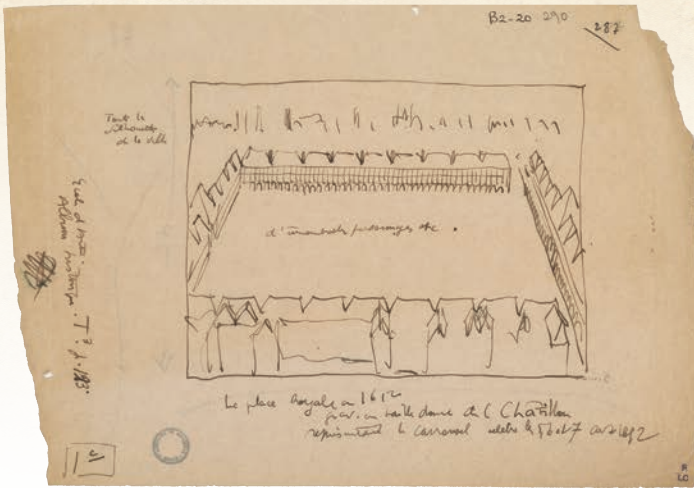 B2-20 290
287
Toute la
silhouette
de la ville
d'innombrables personnages etc.
Album historique. T
La place Royale en 1612
grav. en taille douce de C Chatillon
représentant le carrousel célèbre 5 6 et 7 avril 1612